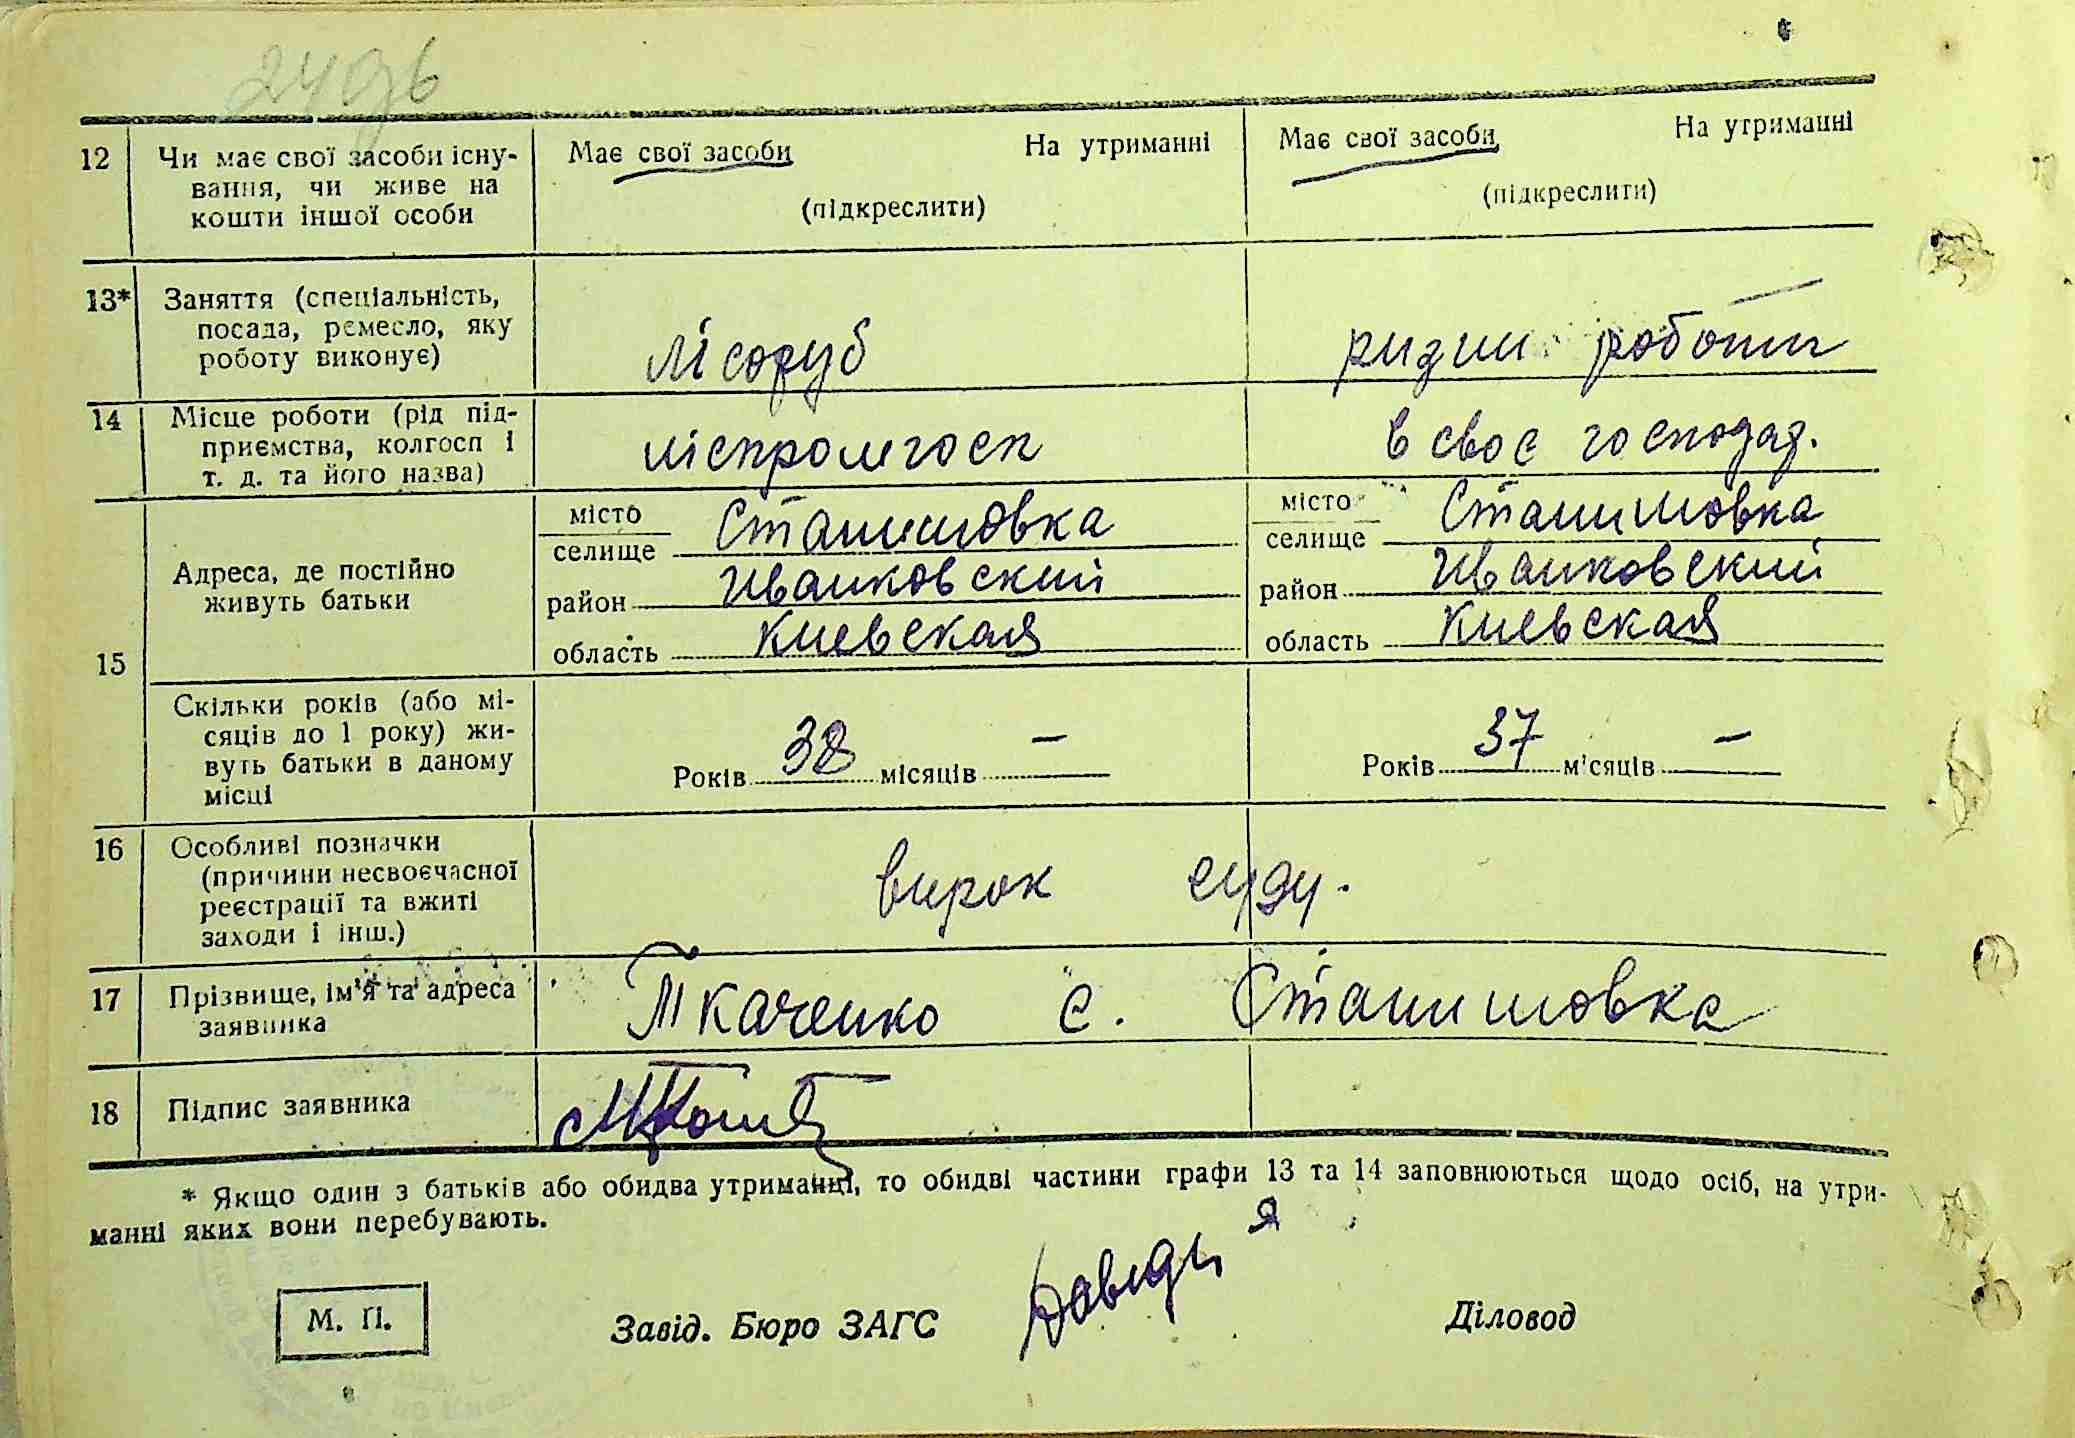 12 Чи має свої засоби існу- Має свої засоби На утриманні Має свої засоби На утриманні
вання, чи живе на
кошти іншої особи (підкреслити) (підкреслити)
13* Заняття (спеціальність,
посада, ремесло, яку
роботу виконує) лісоруб різни роботи
14 Місце роботи (рід під-
приємства, колгосп і
т. д. та його назва) ліспромгосп в своє господар.
місто Станишовка місто Станишовка
селище селище
Адреса, де постійно
живуть батьки район Иванковский район Иванковский
область Киевская область Киевская
15
Скільки років (або мі-
сяців до 1 року) жи-
вуть батьки в даному
місці Років 38 місяців — Років 37 місяців —
16 Особливі позначки
(причини несвоєчасної
реєстрації та вжиті
заходи і інш.) вирок суду.
17 Прізвище, ім'я та адреса
заявника Ткаченко с. Станишовка
18 Підпис заявника
* Якщо один з батьків або обидва утриманці, то обидві частини графи 13 та 14 заповнюються щодо осіб, на утри-
манні яких вони перебувають.
М. П. Завід. Бюро ЗАГС Діловод